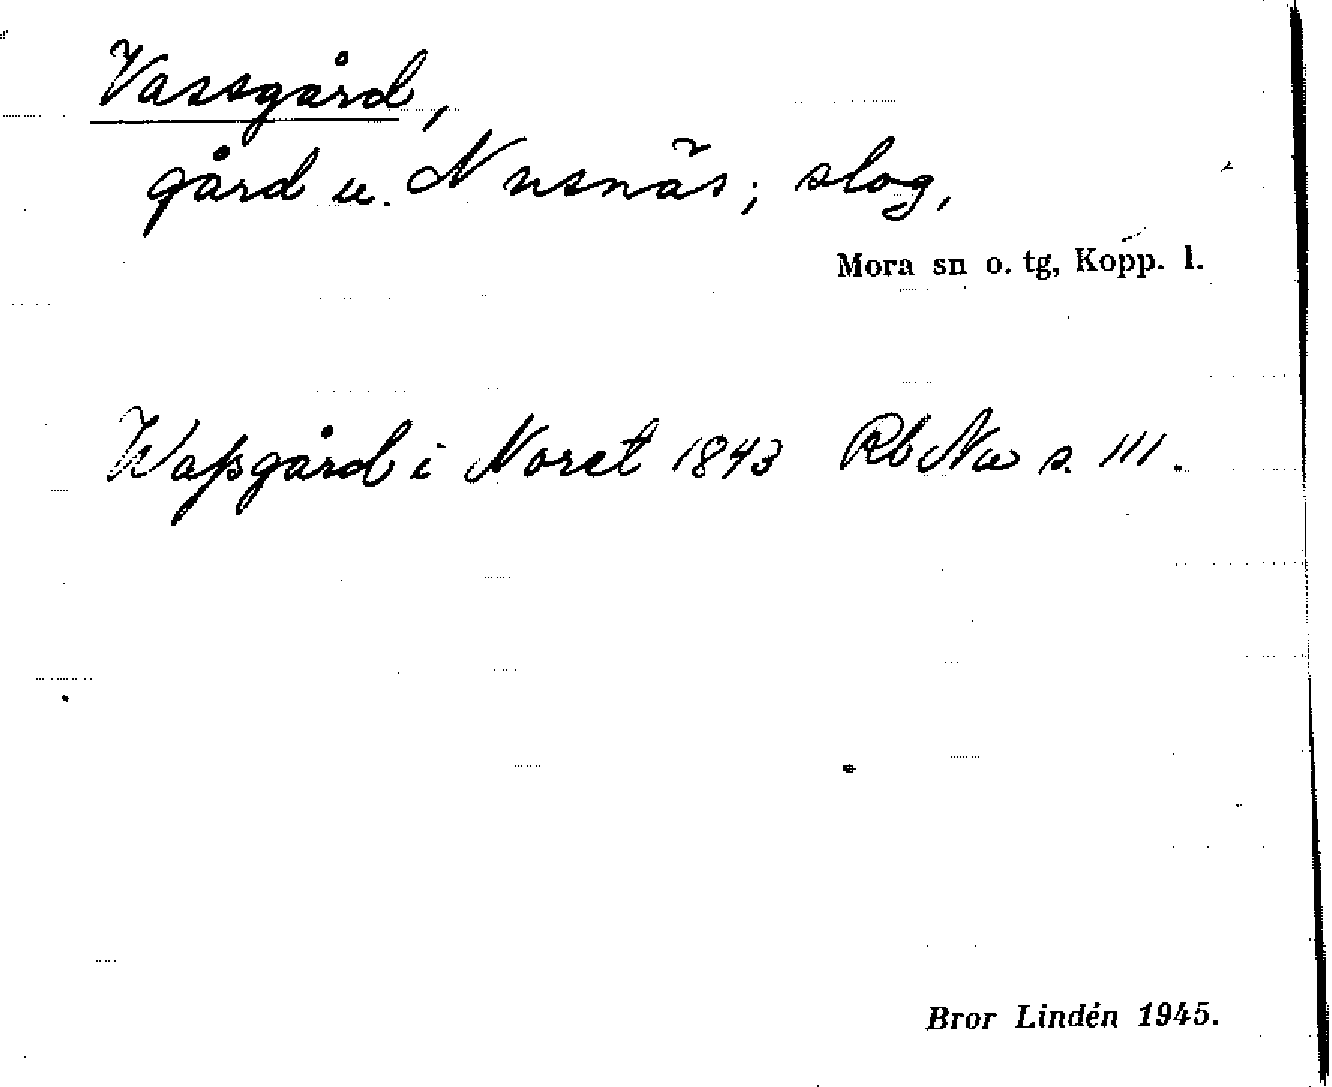 Vassgård,
gård u. Nusnäs; slog,
Mora sn o. tg, Kopp. l.
Wassgård i Noret 1843 Rb Nu s. 111.
Bror Lindén 1945.